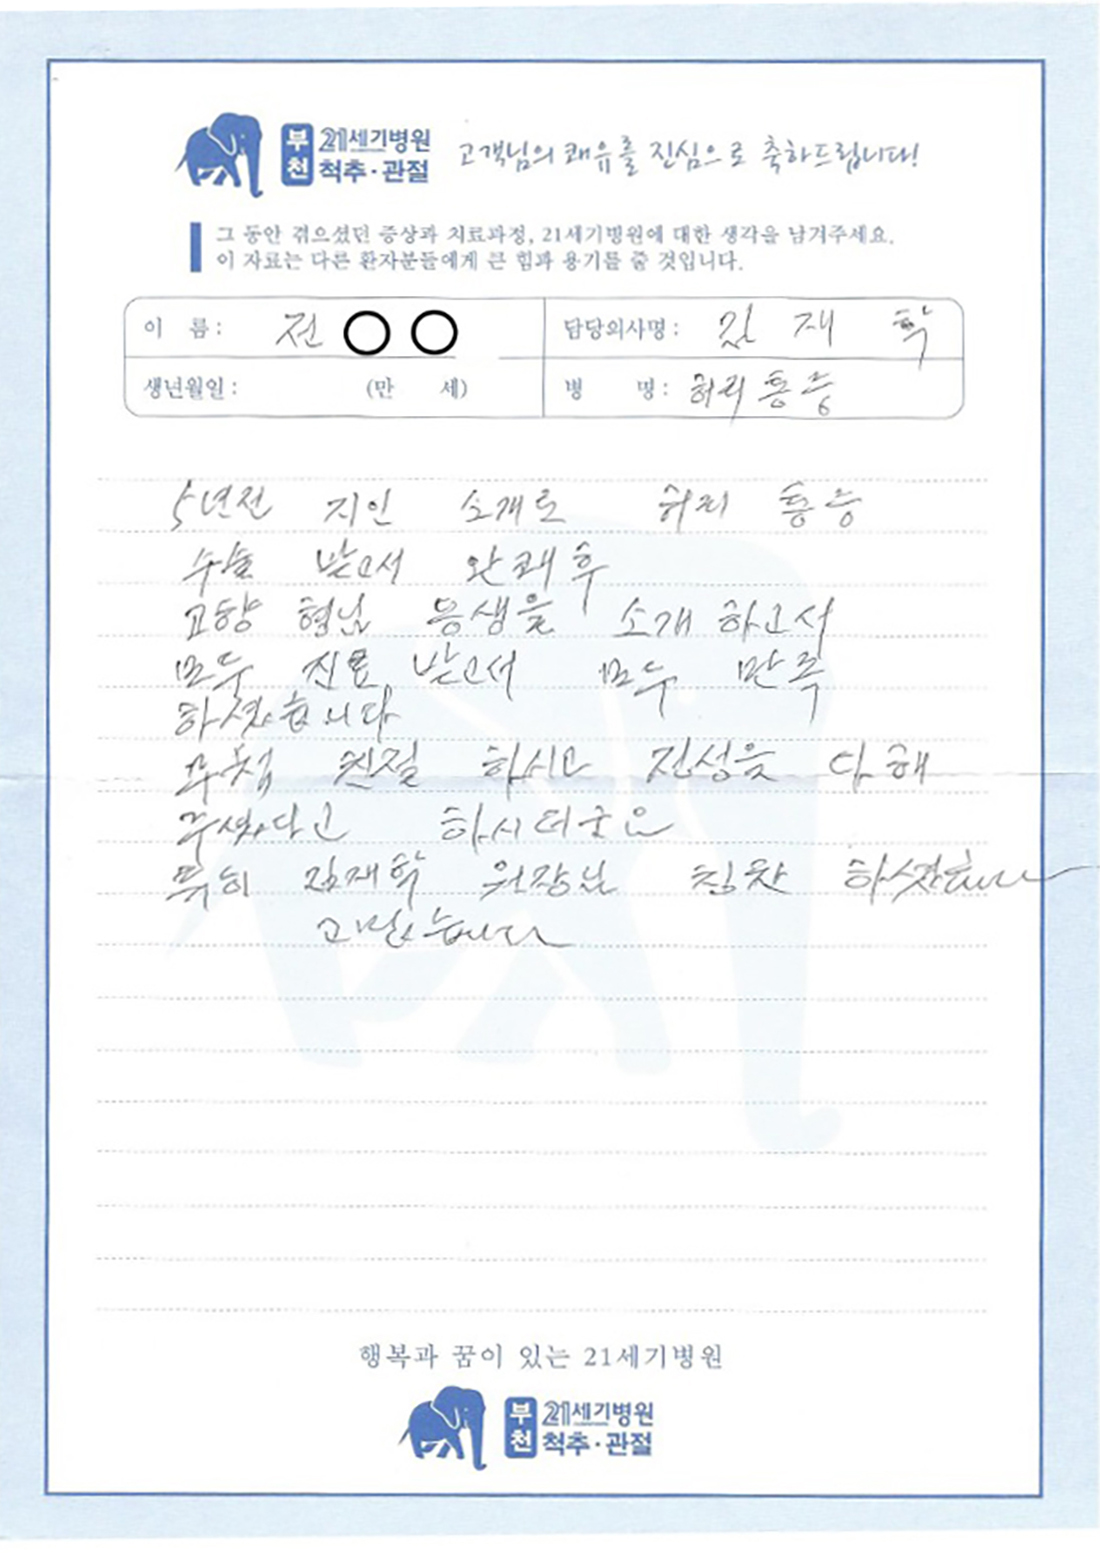 부천 21세기병원 척추·관절 고객님의 쾌유를 진심으로 축하드립니다!
그 동안 겪으셨던 증상과 치료과정, 21세기병원에 대한 생각을 남겨주세요.
이 자료는 다른 환자분들에게 큰 힘과 용기를 줄 것입니다.
이 름 : 전 담당의사명 : 김 재 학
생년월일 : (만 세) 병 명 : 허리 통증
5년전 지인 소개로 허리 통증
수술 받고서 완쾌 후
고향 형님 동생을 소개 하고서
모두 진료 받고서 모두 만족
하셨습니다
친절 하시고 진성을 다 해
주셨다고 하시더군요
특히 김재학 원장님 칭찬 하셨습니다
고맙습니다
행복과 꿈이 있는 21세기병원
부천 21세기병원 척추·관절